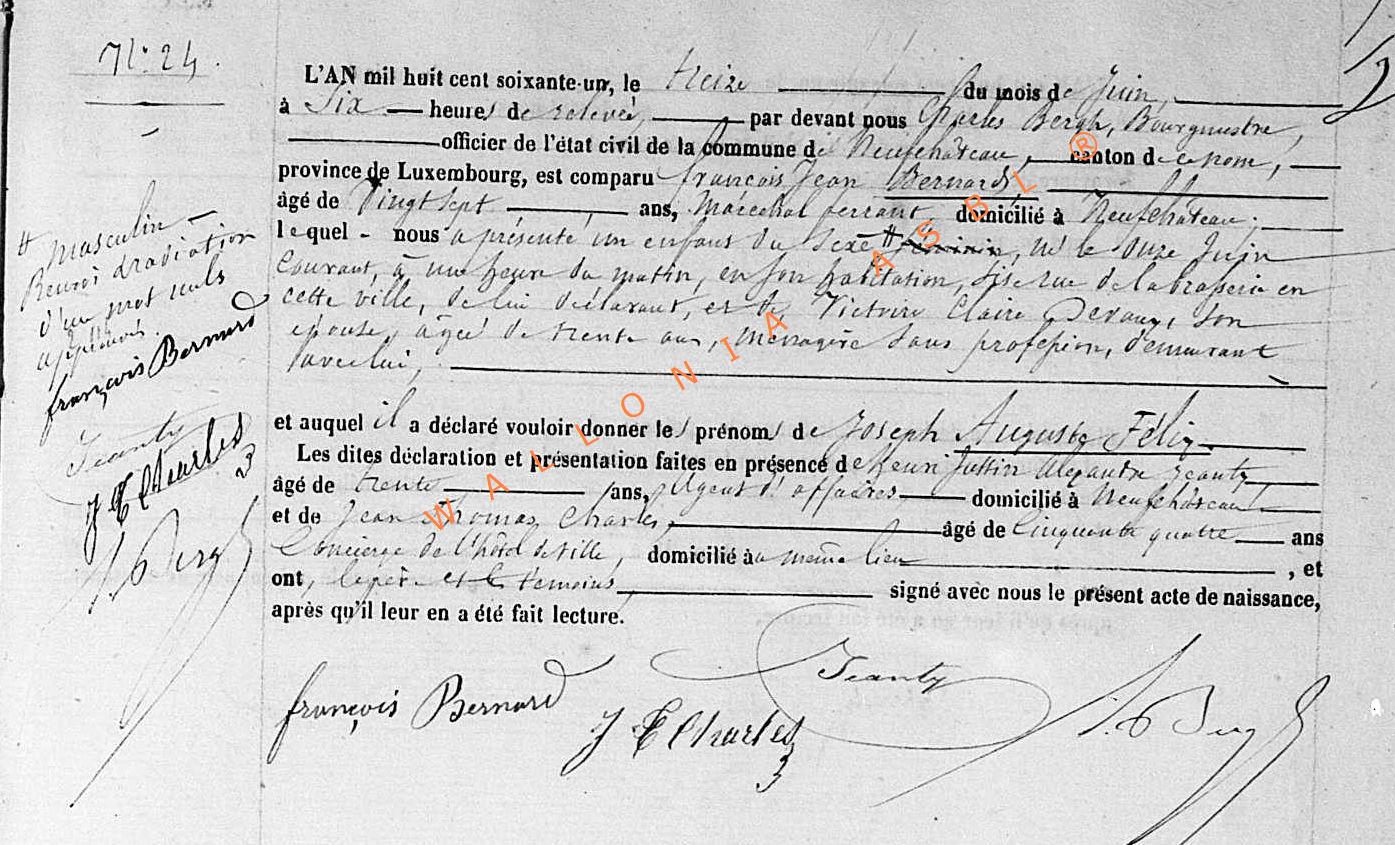 N° 24.
L'AN mil huit cent soixante-un, le treize du mois de Juin,
à Six heures de relevée, par devant nous Charles Bergh, Bourgmestre,
officier de l'état civil de la commune de Neufchâteau, canton de ce nom,
province de Luxembourg, est comparu françois Jean Bernard,
âgé de Vingt sept ans, Maréchal ferrant, domicilié à Neufchâteau,
lequel - nous a présenté un enfant du sexe # féminin, né le Onze Juin
courant, à une heure du matin, en son habitation, sise rue de la brasserie en
cette ville, de lui déclarant, et de Victoire Claire Devaux, son
épouse, âgée de trente ans, ménagère sans profession, demeurant
avec lui,
et auquel il a déclaré vouloir donner les prénoms de Joseph Auguste Félix
Les dites déclaration et présentation faites en présence de henri Justin Alexandre Jeanty
âgé de trente ans, Agent d'affaires domicilié à Neufchâteau
et de Jean Thomas Charles, âgé de Cinquante quatre ans
Concierge de l'hôtel de ville, domicilié au même lieu, et
ont, le père et les témoins, signé avec nous le présent acte de naissance,
après qu'il leur en a été fait lecture.
françois Bernard
J T Charles
Jeanty
# masculin
Renvoi & radiation
d'un mot nuls
approuvés.
françois Bernard
Jeanty
J T Charles
WALLONIA ASBL ®